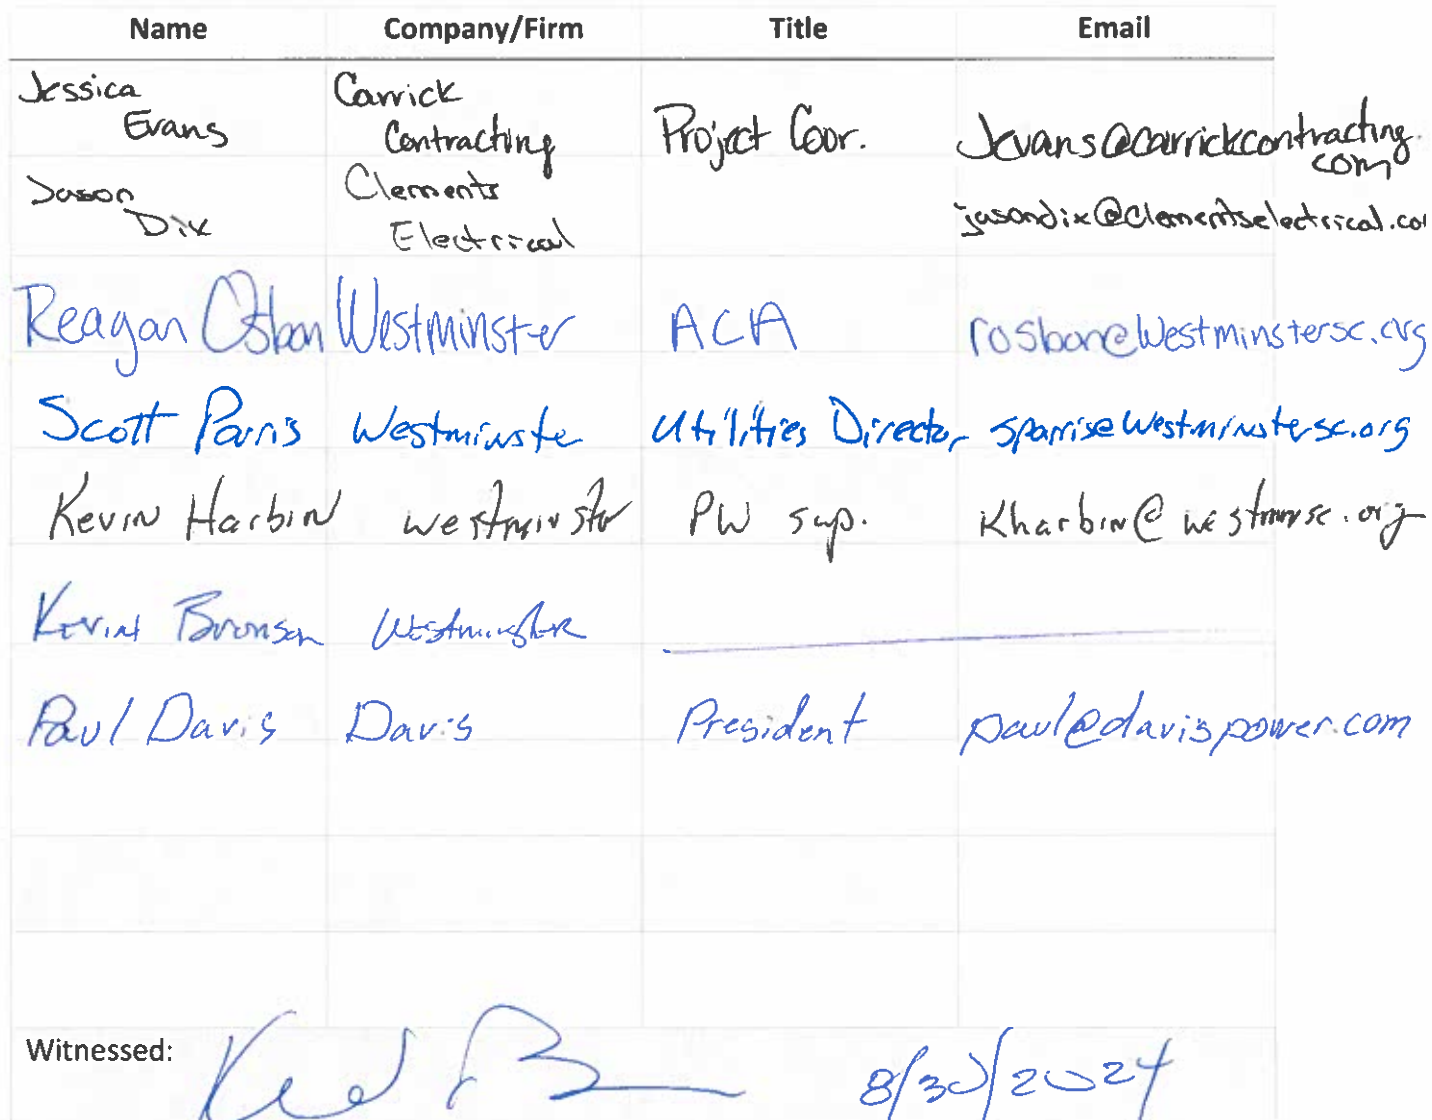 Name Company/Firm Title Email
Jessica Evans Carrick Contracting Project Coor. Jevans@carrickcontracting.com
Jason Dix Clements Electrical jasondix@clementselectrical.co
Reagan Osbon Westminster ACA rosbon@westminstersc.org
Scott Parris Westminster Utilities Director sparris@westminstersc.org
Kevin Harbin Westminster PW sup. Kharbin@westminsc.org
Kevin Bronson Westminster
Paul Davis Davis President paul@davispower.com
Witnessed: 8/30/2024